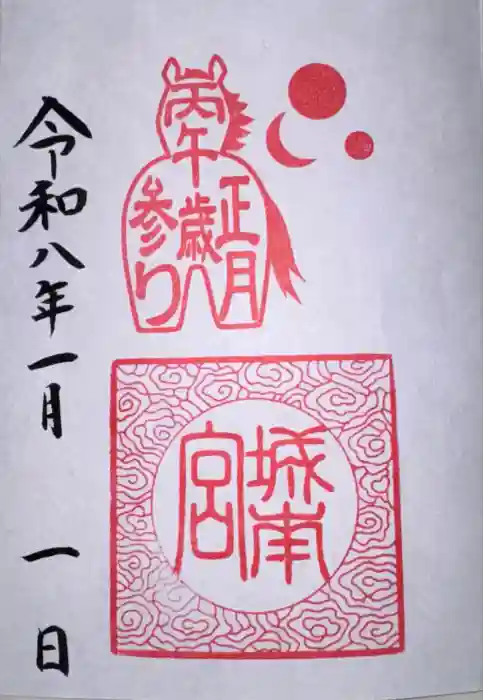 丙午
正月
歳
参り
城南
宮
令和八年一月
一日